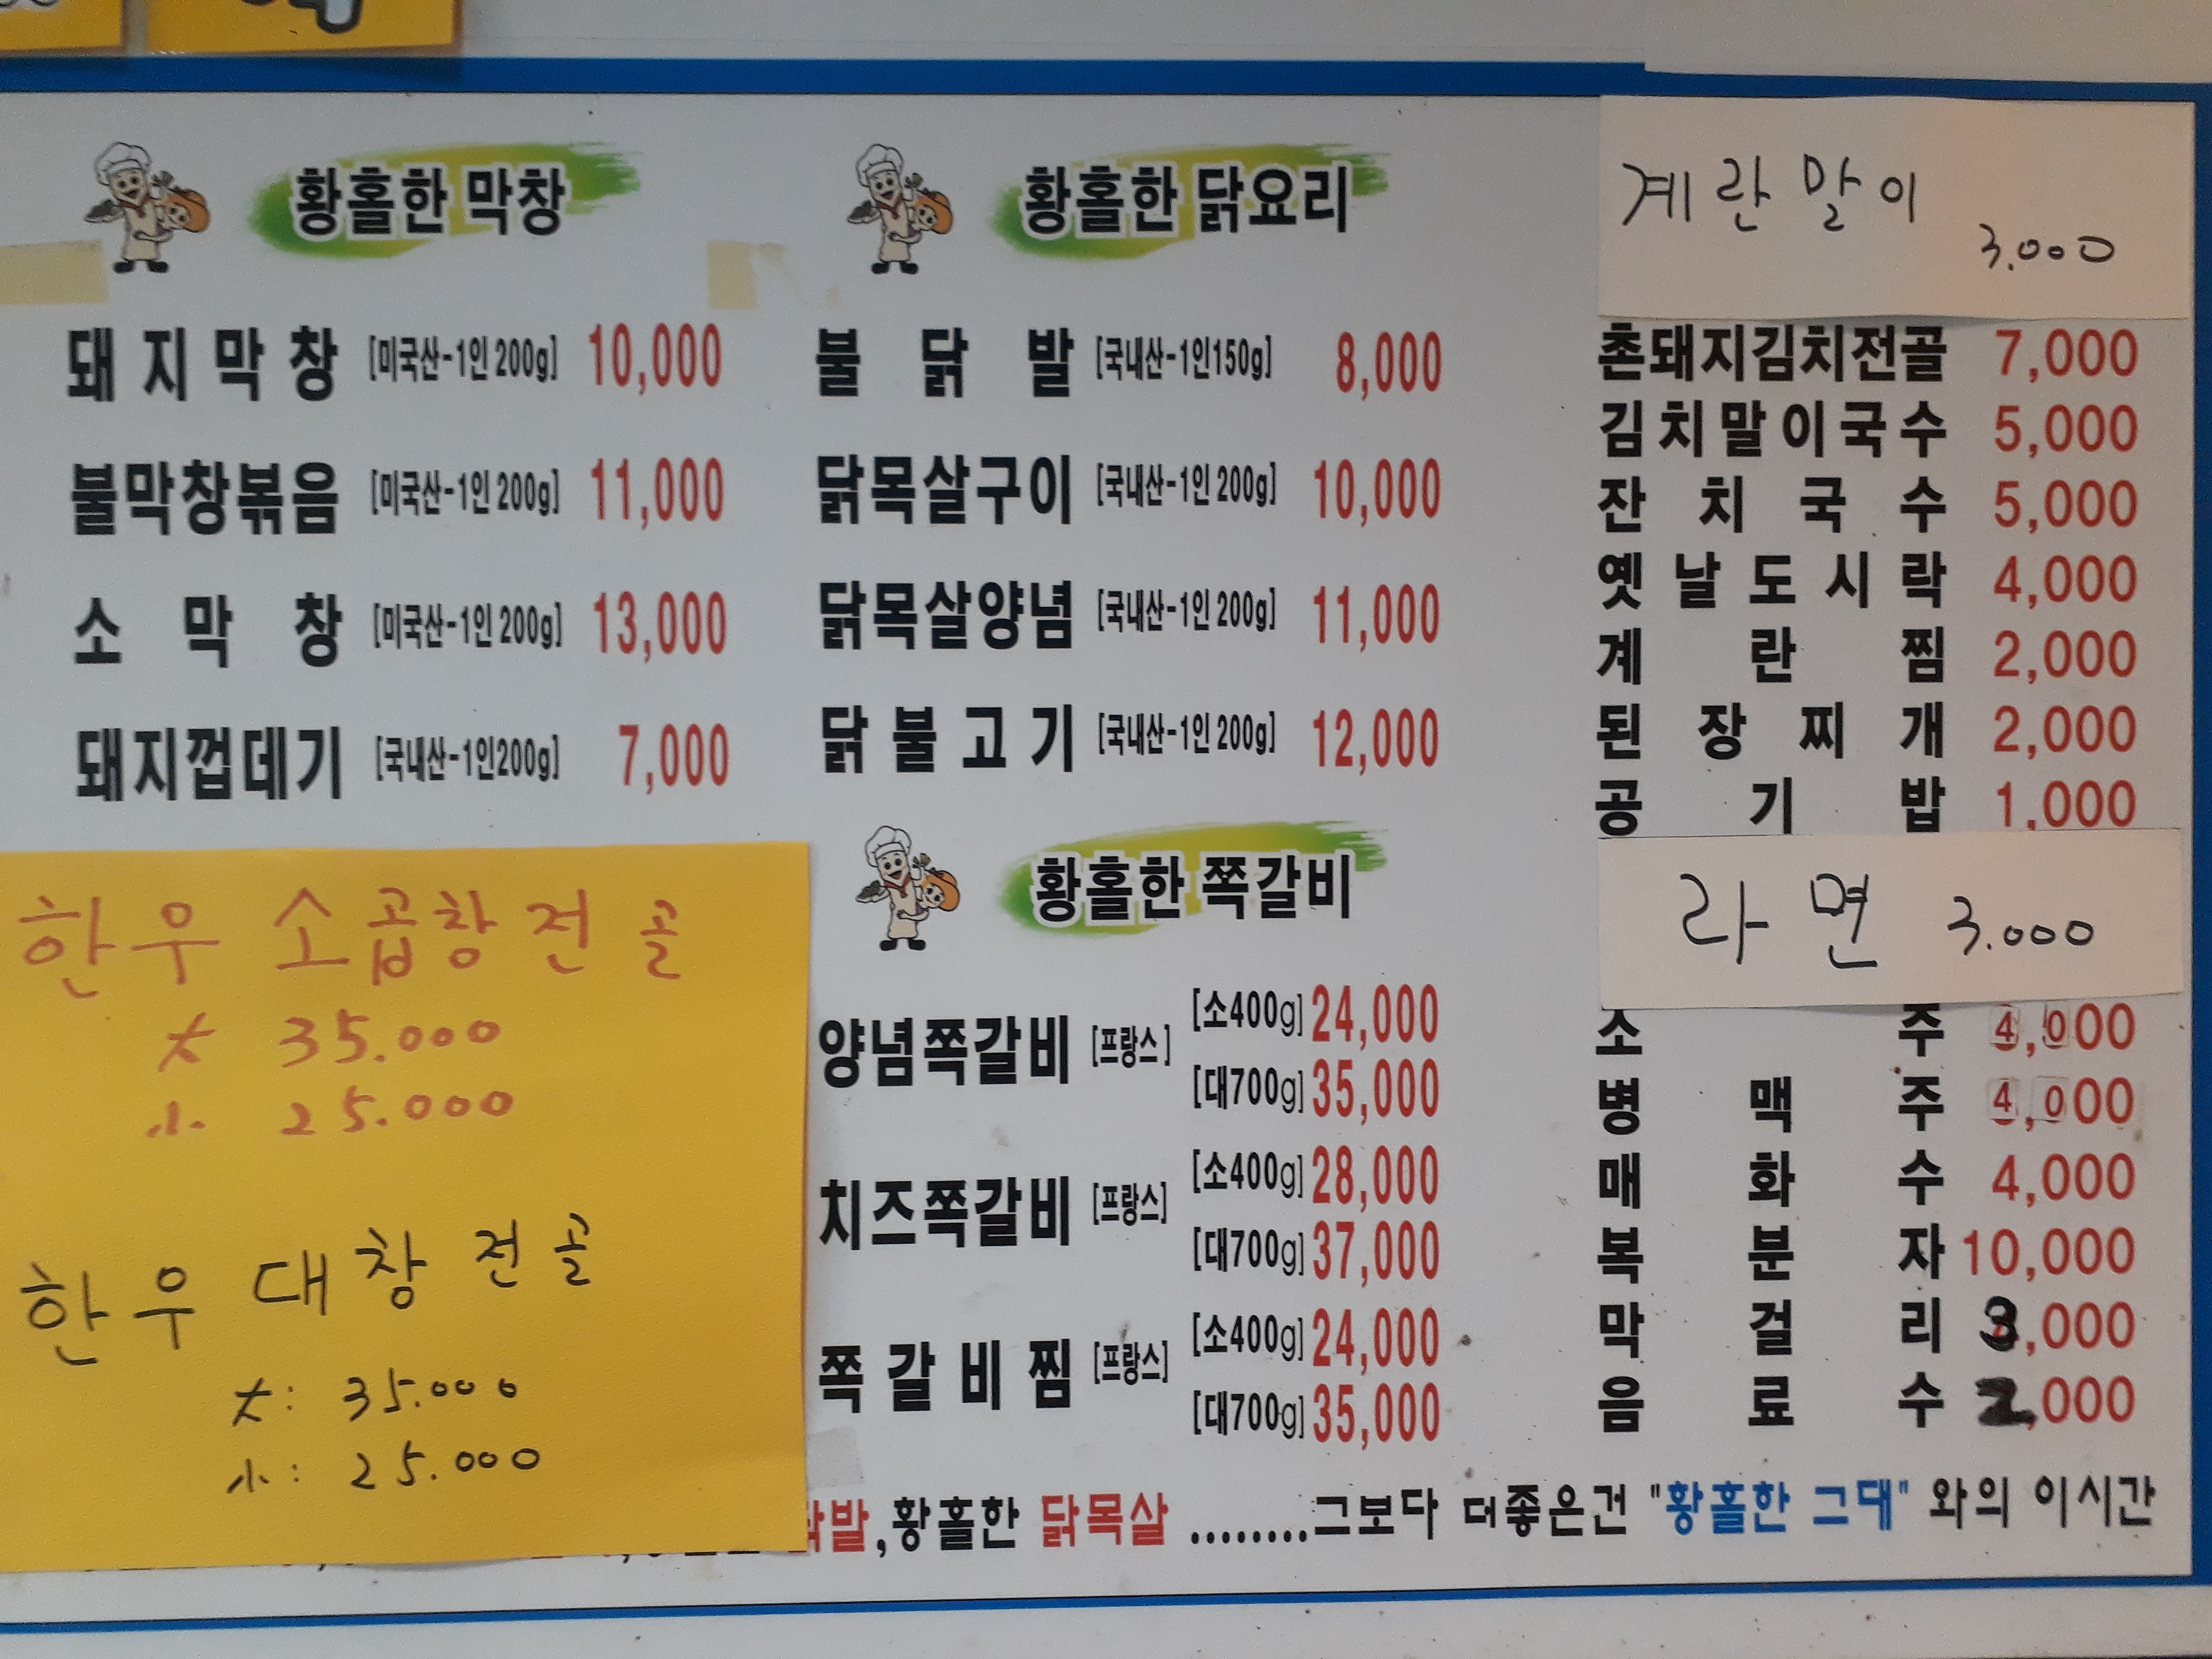 황홀한 막창
돼지막창 [미국산-1인 200g] 10,000
불막창볶음 [미국산-1인 200g] 11,000
소막창 [미국산-1인 200g] 13,000
돼지껍데기 [국내산-1인200g] 7,000
한우 소곱창전골
大 35.000
小. 25.000
한우 대창전골
大: 35.000
小: 25.000
황홀한 닭요리
불닭발 [국내산-1인150g] 8,000
닭목살구이 [국내산-1인 200g] 10,000
닭목살양념 [국내산-1인 200g] 11,000
닭불고기 [국내산-1인 200g] 12,000
황홀한 쪽갈비
양념쪽갈비 [프랑스] [소400g] 24,000
[대700g] 35,000
치즈쪽갈비 [프랑스] [소400g] 28,000
[대700g] 37,000
쪽갈비찜 [프랑스] [소400g] 24,000
[대700g] 35,000
계란말이
3.000
촌돼지김치전골 7,000
김치말이국수 5,000
잔치국수 5,000
옛날도시락 4,000
계란찜 2,000
된장찌개 2,000
공기밥 1,000
라면 3.000
소주 4,000
병맥주 4,000
매화수 4,000
복분자 10,000
막걸리 3,000
음료수 2,000
닭발,황홀한 닭목살 ........그보다 더좋은건 "황홀한 그대" 와의 이시간